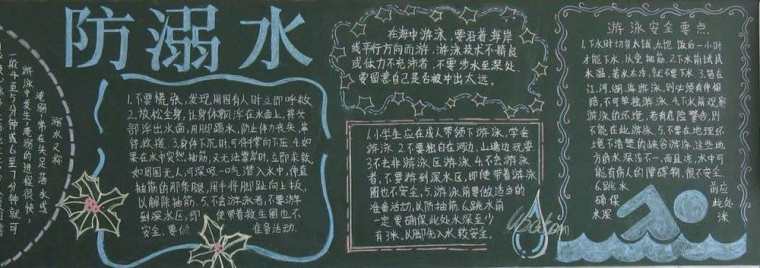 防溺水
溺水又称
淹溺,常在失足落水或
游泳中发生,淹溺的进程很快,
1.不要慌张,发现周围有人时立即呼救
2.放松全身,让身体飘浮在水面上,将头
部浮出水面,用脚踢水,防止体力丧失,等
待救援。3.身体下沉时,可将手掌向下压,4.如
果在水中突然抽筋,又无法靠岸时,立即求救,
如周围无人,可深吸一口气潜入水中,伸直
抽筋的那条腿,用手将脚趾向上扳,
以解除抽筋。5.不会游泳者,不要游
到深水区,即使带着救生圈也不
安全。要做
在海中游泳,要沿着海岸
线平行方向而游,游泳技术不精良
或体力不充沛者,不要涉水至深处。
要留意自己是否被冲出太远。
1.小学生应在成人带领下游泳,学会
游泳。2.不要独自在河边、山塘边玩耍。
3.不去非游泳区游泳,4.不会游泳
者,不要游到深水区,即使带着游泳
圈也不安全。5.游泳前要做适当的
准备活动,以防抽筋。6.跳水前
一定要确保此处水深至少
游泳安全要点
1.下水时切勿太饿、太饱。饭后一小时
才能下水,以免抽筋。2.下水前试试
水温,若水太冷,就不要下水。3.若在
江、河、湖、海游泳,则必须有伴相
陪,不可单独游泳。4.下水前观察
游泳的环境,若有危险警告,则
不能在此游泳。5.不要在地理环
境不清楚的峡谷游泳。这些地
方的水深浅不一,而且凉,水中可
能有伤人的障碍物,很不安全。
6.跳水前应
确保此处
水深